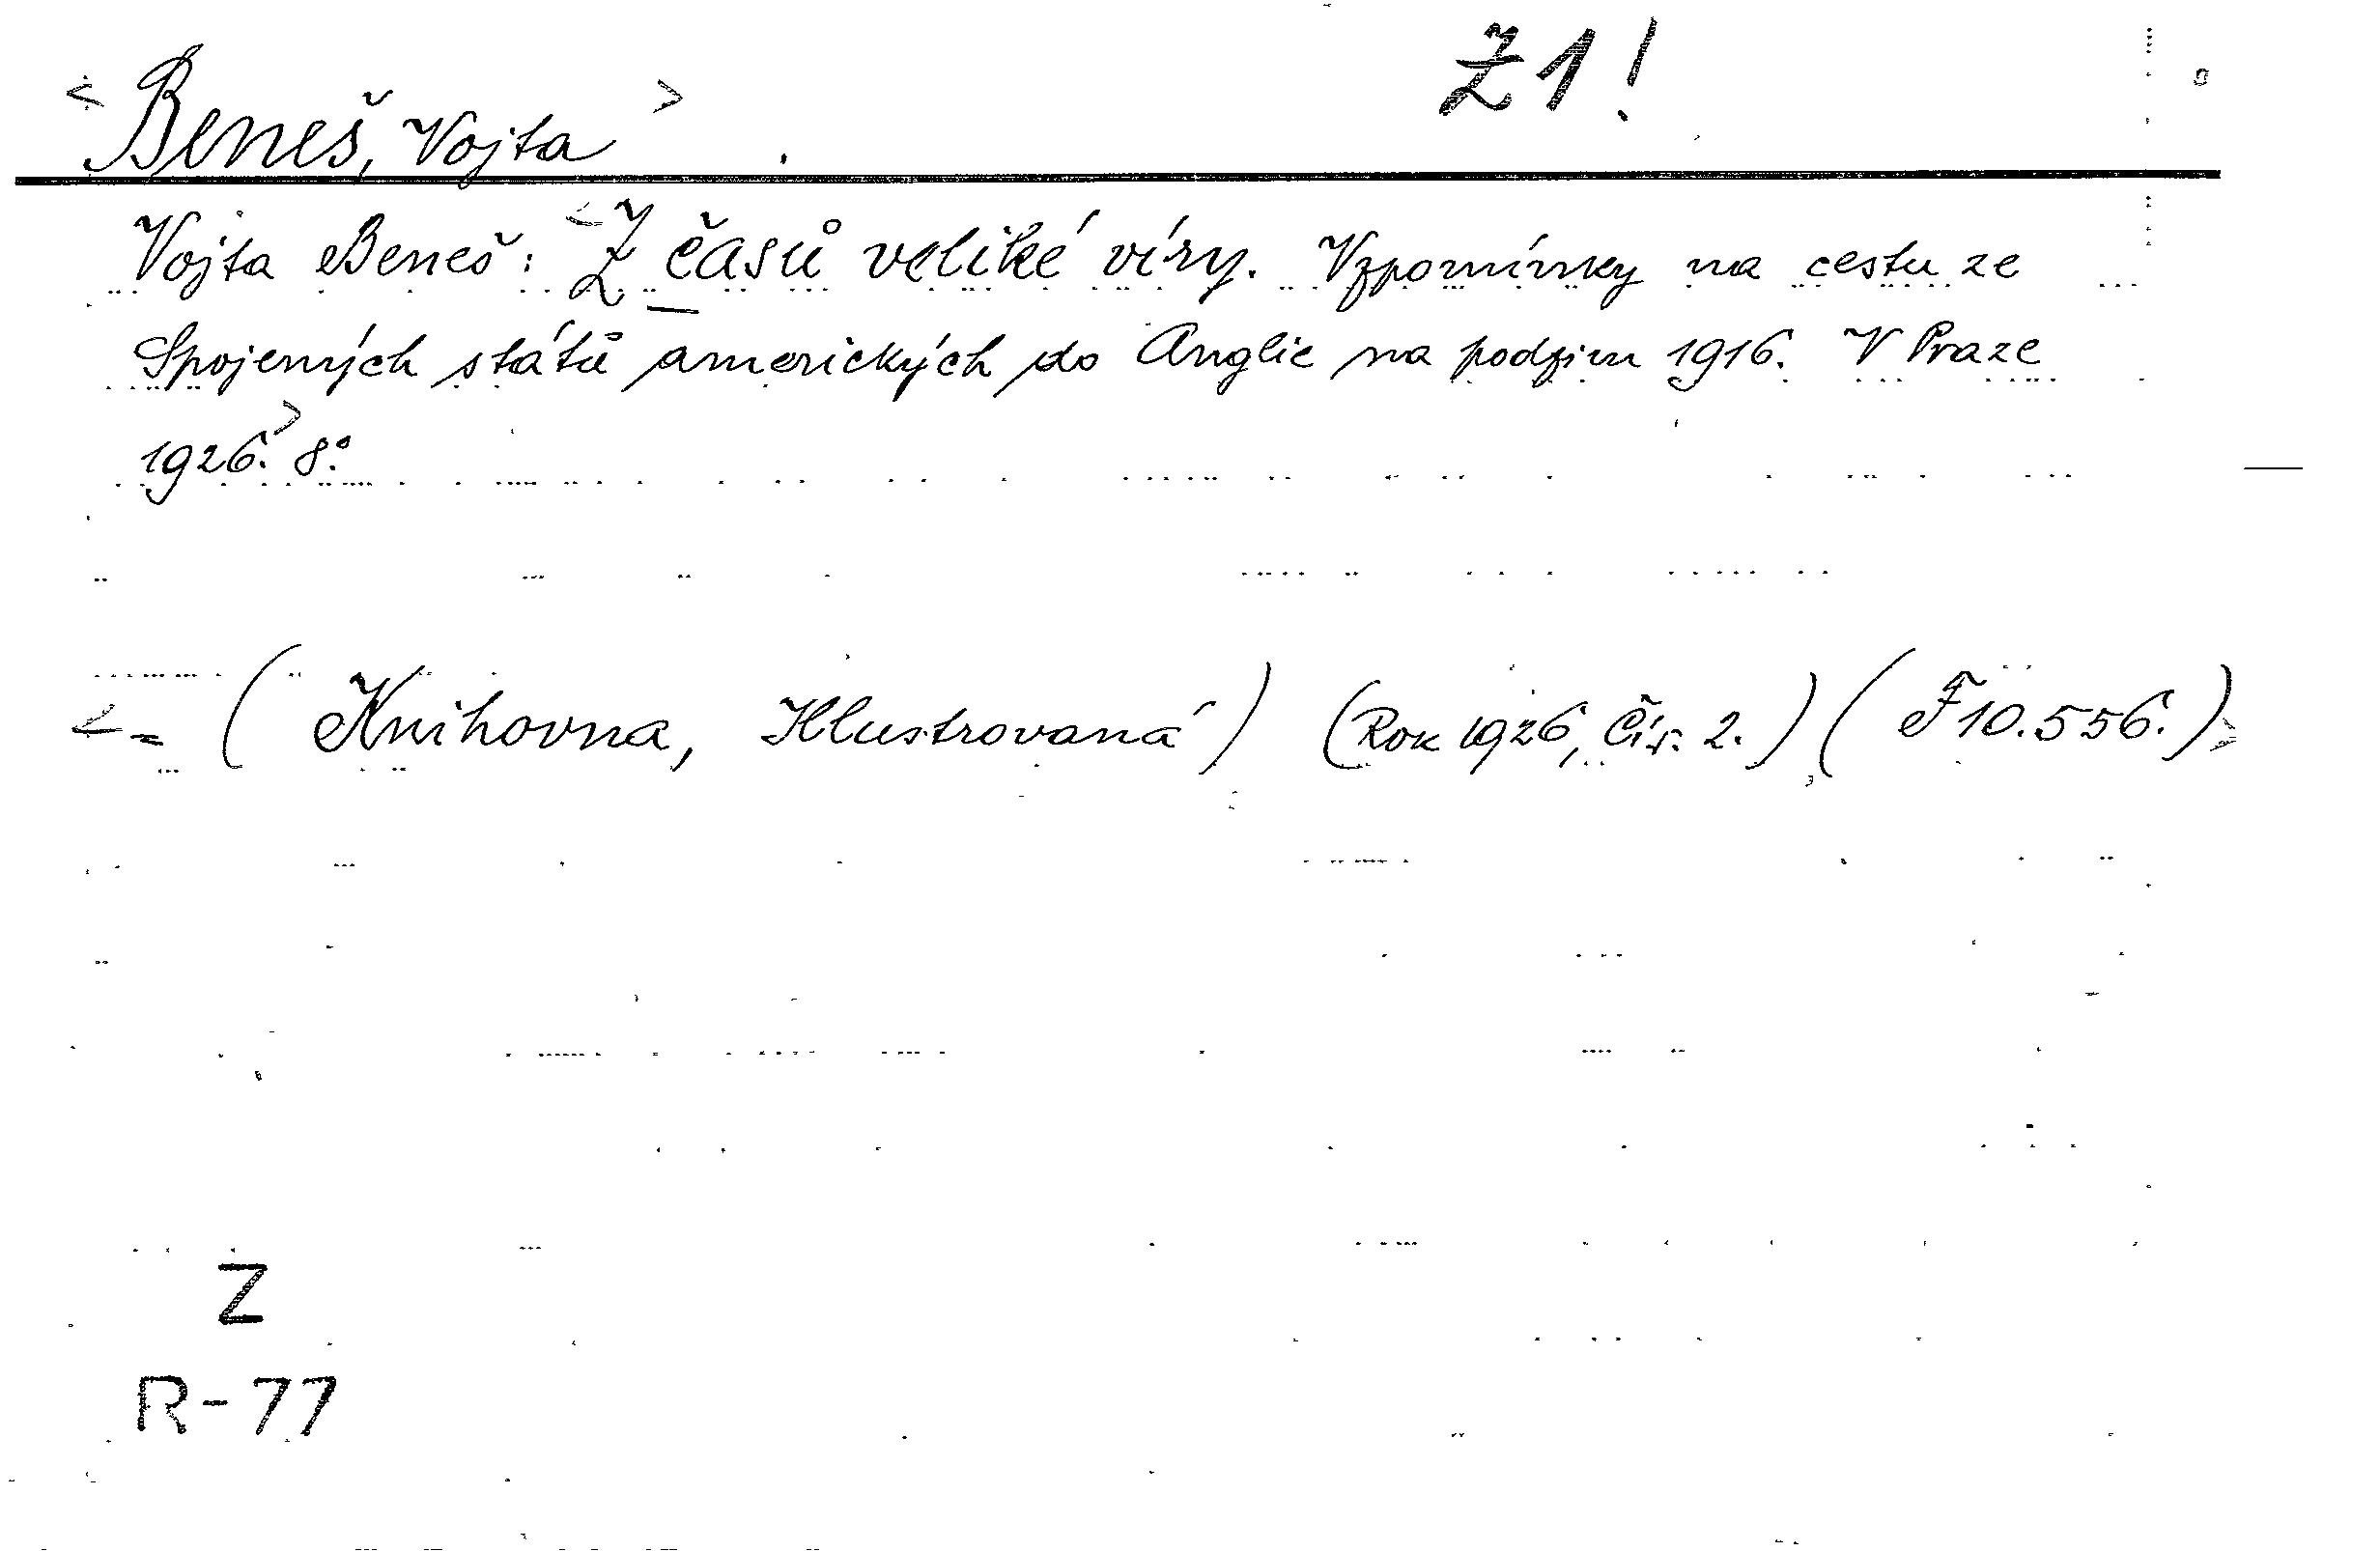 <Beneš, Vojta> Z1!
Vojta Beneš: <Z časů veliké víry. Vzpomínky na cestu ze
Spojených států amerických do Anglie na podzim 1916. V Praze
1926.> 8°.
<= (Knihovna, Illustrovaná) (Rok 1926, Čís. 2.) (F 10.556.)>
Z
R-77